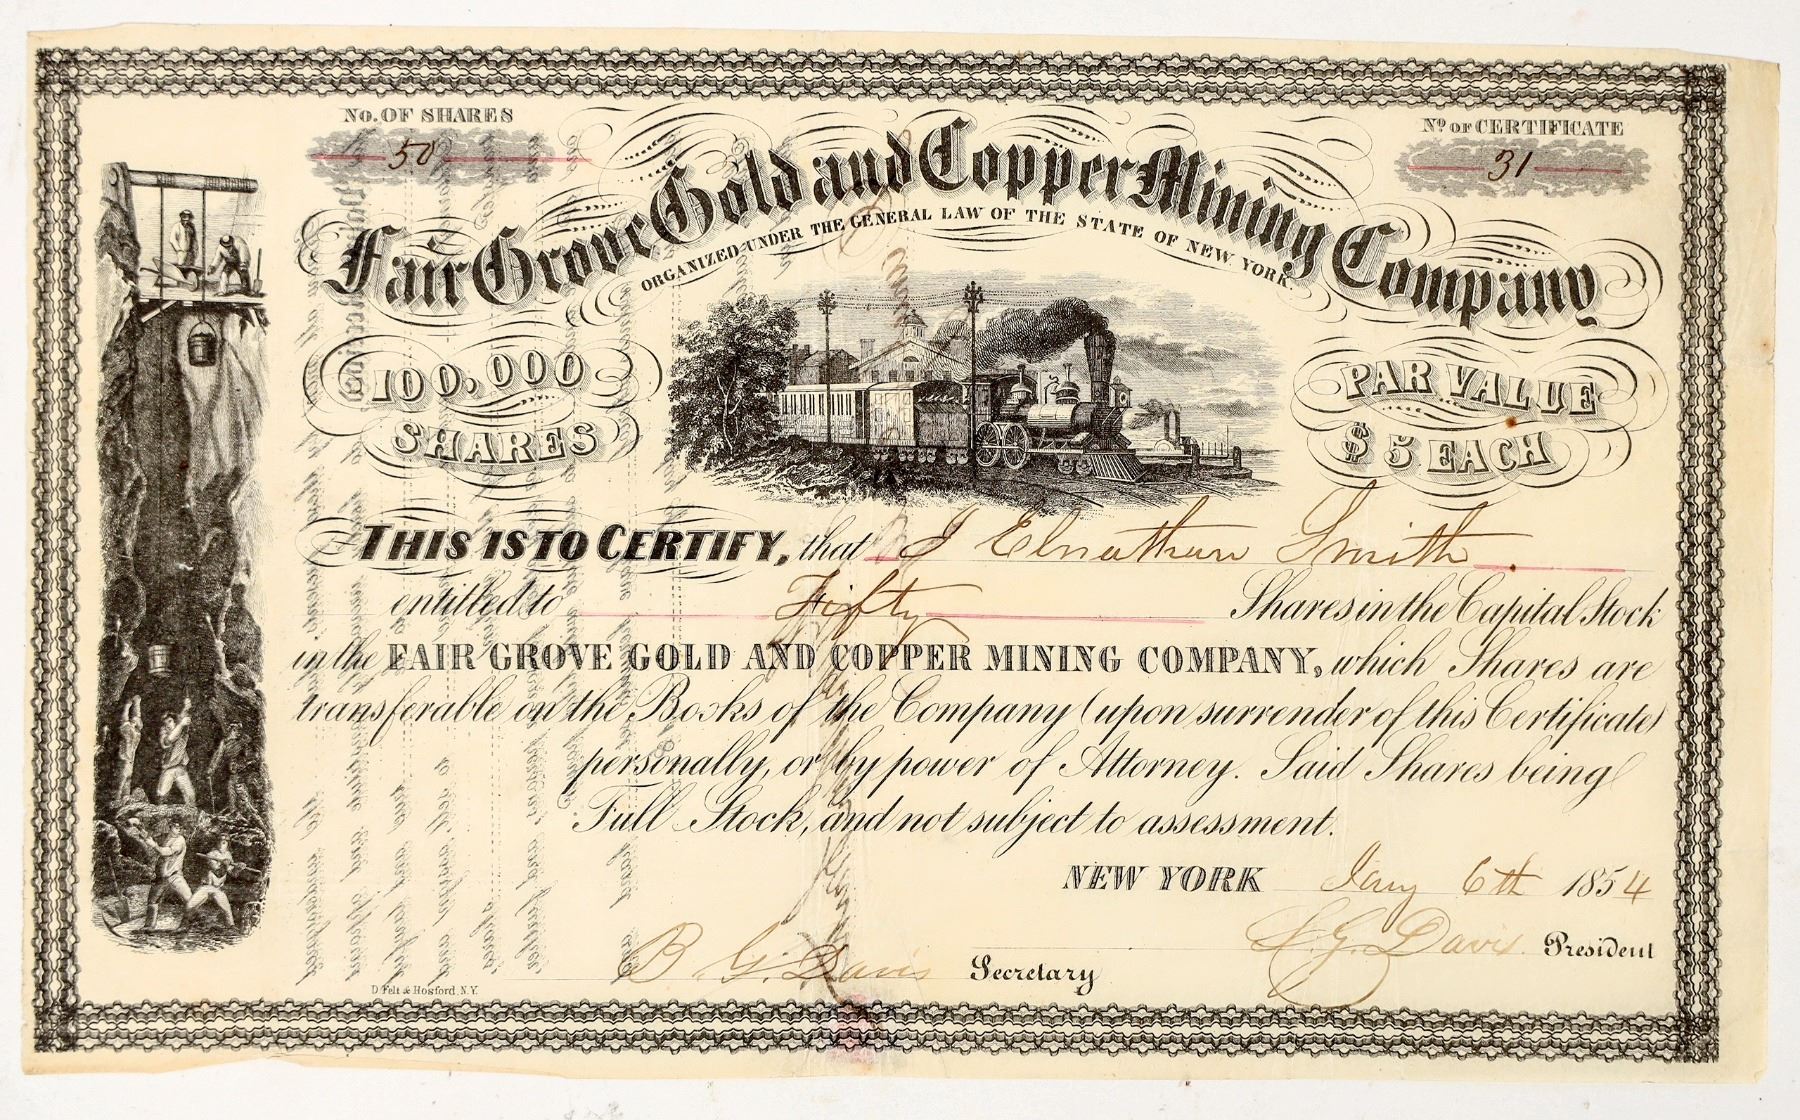 No. OF SHARES
50
No. OF CERTIFICATE
31
Fair Grove Gold and Copper Mining Company
ORGANIZED UNDER THE GENERAL LAW OF THE STATE OF NEW YORK.
100,000
SHARES
PAR VALUE
$5 EACH
THIS IS TO CERTIFY, that J Elnathan Smith
entitled to Fifty Shares in the Capital Stock
in the FAIR GROVE GOLD AND COPPER MINING COMPANY, which Shares are
transferable on the Books of the Company (upon surrender of this Certificate)
personally, or by power of Attorney. Said Shares being
Full Stock, and not subject to assessment.
NEW YORK Jany 6th 1854
B. G. Davis Secretary
G. Davis President
D. Felt & Hosford, N.Y.